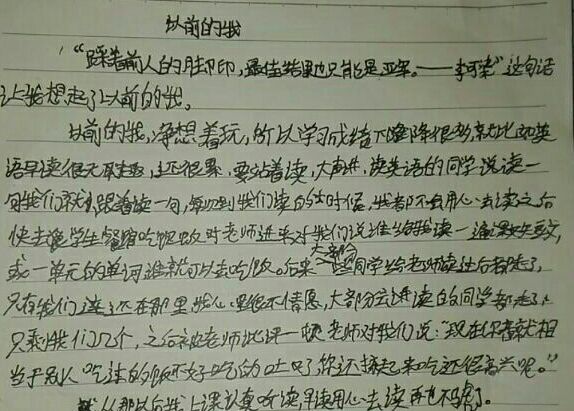 以前的我
“踩着前人的脚印,最佳结果也只能是亚军。——李可染”这句话
让我想起了以前的我。
以前的我,净想着玩,所以学习成绩下降很多,就比如英
语早读很无聊,还很累,要站着读,大声,读英语的同学说读一
句我们就跟着读一句,每切到我们读的时候,我都不会用心去读之后
快去学生餐馆吃饭时老师进来对我们说谁给我读一遍课文,
或一单元的单词谁就可以去吃饭。后来大部分同学给老师读过后都走了,
只有我们还在那里我心里很不情愿,大部分会读的同学都走了,
只剩我们几个,之后被老师批评一顿老师对我们说:“现在你们就相
当于别人吃过的饭不好吃的吐了你还捡起来吃还很高兴呢。”
从那以后我上课认真听读,早读用心去读再也不骂了。